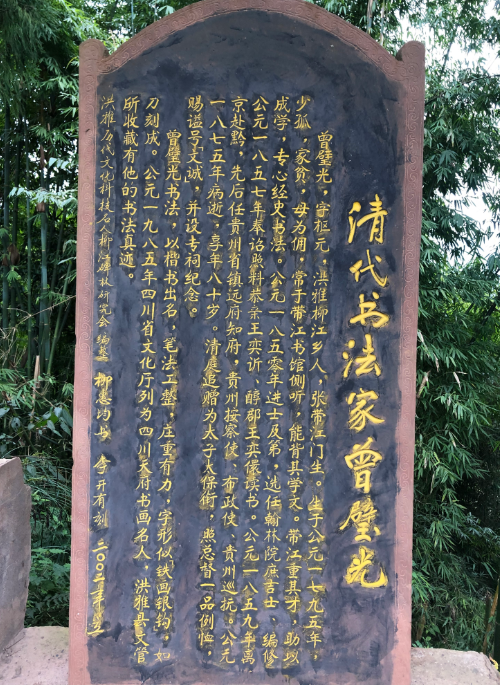 清代书法家曾璧光
曾璧光，字枢元，洪雅柳江乡人，张带江门生。生于公元一七九五年，
少孤，家贫，母为佣，常于带江书馆侧听，能背其学文。带江重其才，助以
成学，专心经史书法。公元一八五零年进士及弟，选任翰林院庶吉士、编修
公元一八五七年奉诏照料恭亲王奕䜣、醇郡王奕儇读书。公元一八五九年离
京赴黔，先后任贵州省镇远府知府，贵州按察使、布政使、贵州巡抚。公元
一八七五年病逝，享年八十岁。清庭追赠为太子太保衔，照总督一品例恤，
赐谥号文诚，并设专祠纪念。
曾璧光书法，以楷书出名，笔法工整，庄重有力，字形似铁画银钩，如
刀刻成。公元一九八五年四川省文化厅列为四川天府书画名人，洪雅县文管
所收藏有他的书法真迹。
洪雅历代文化科技名人柳江碑林研究会 编纂 柳惠均书 李开有刻 二00二年